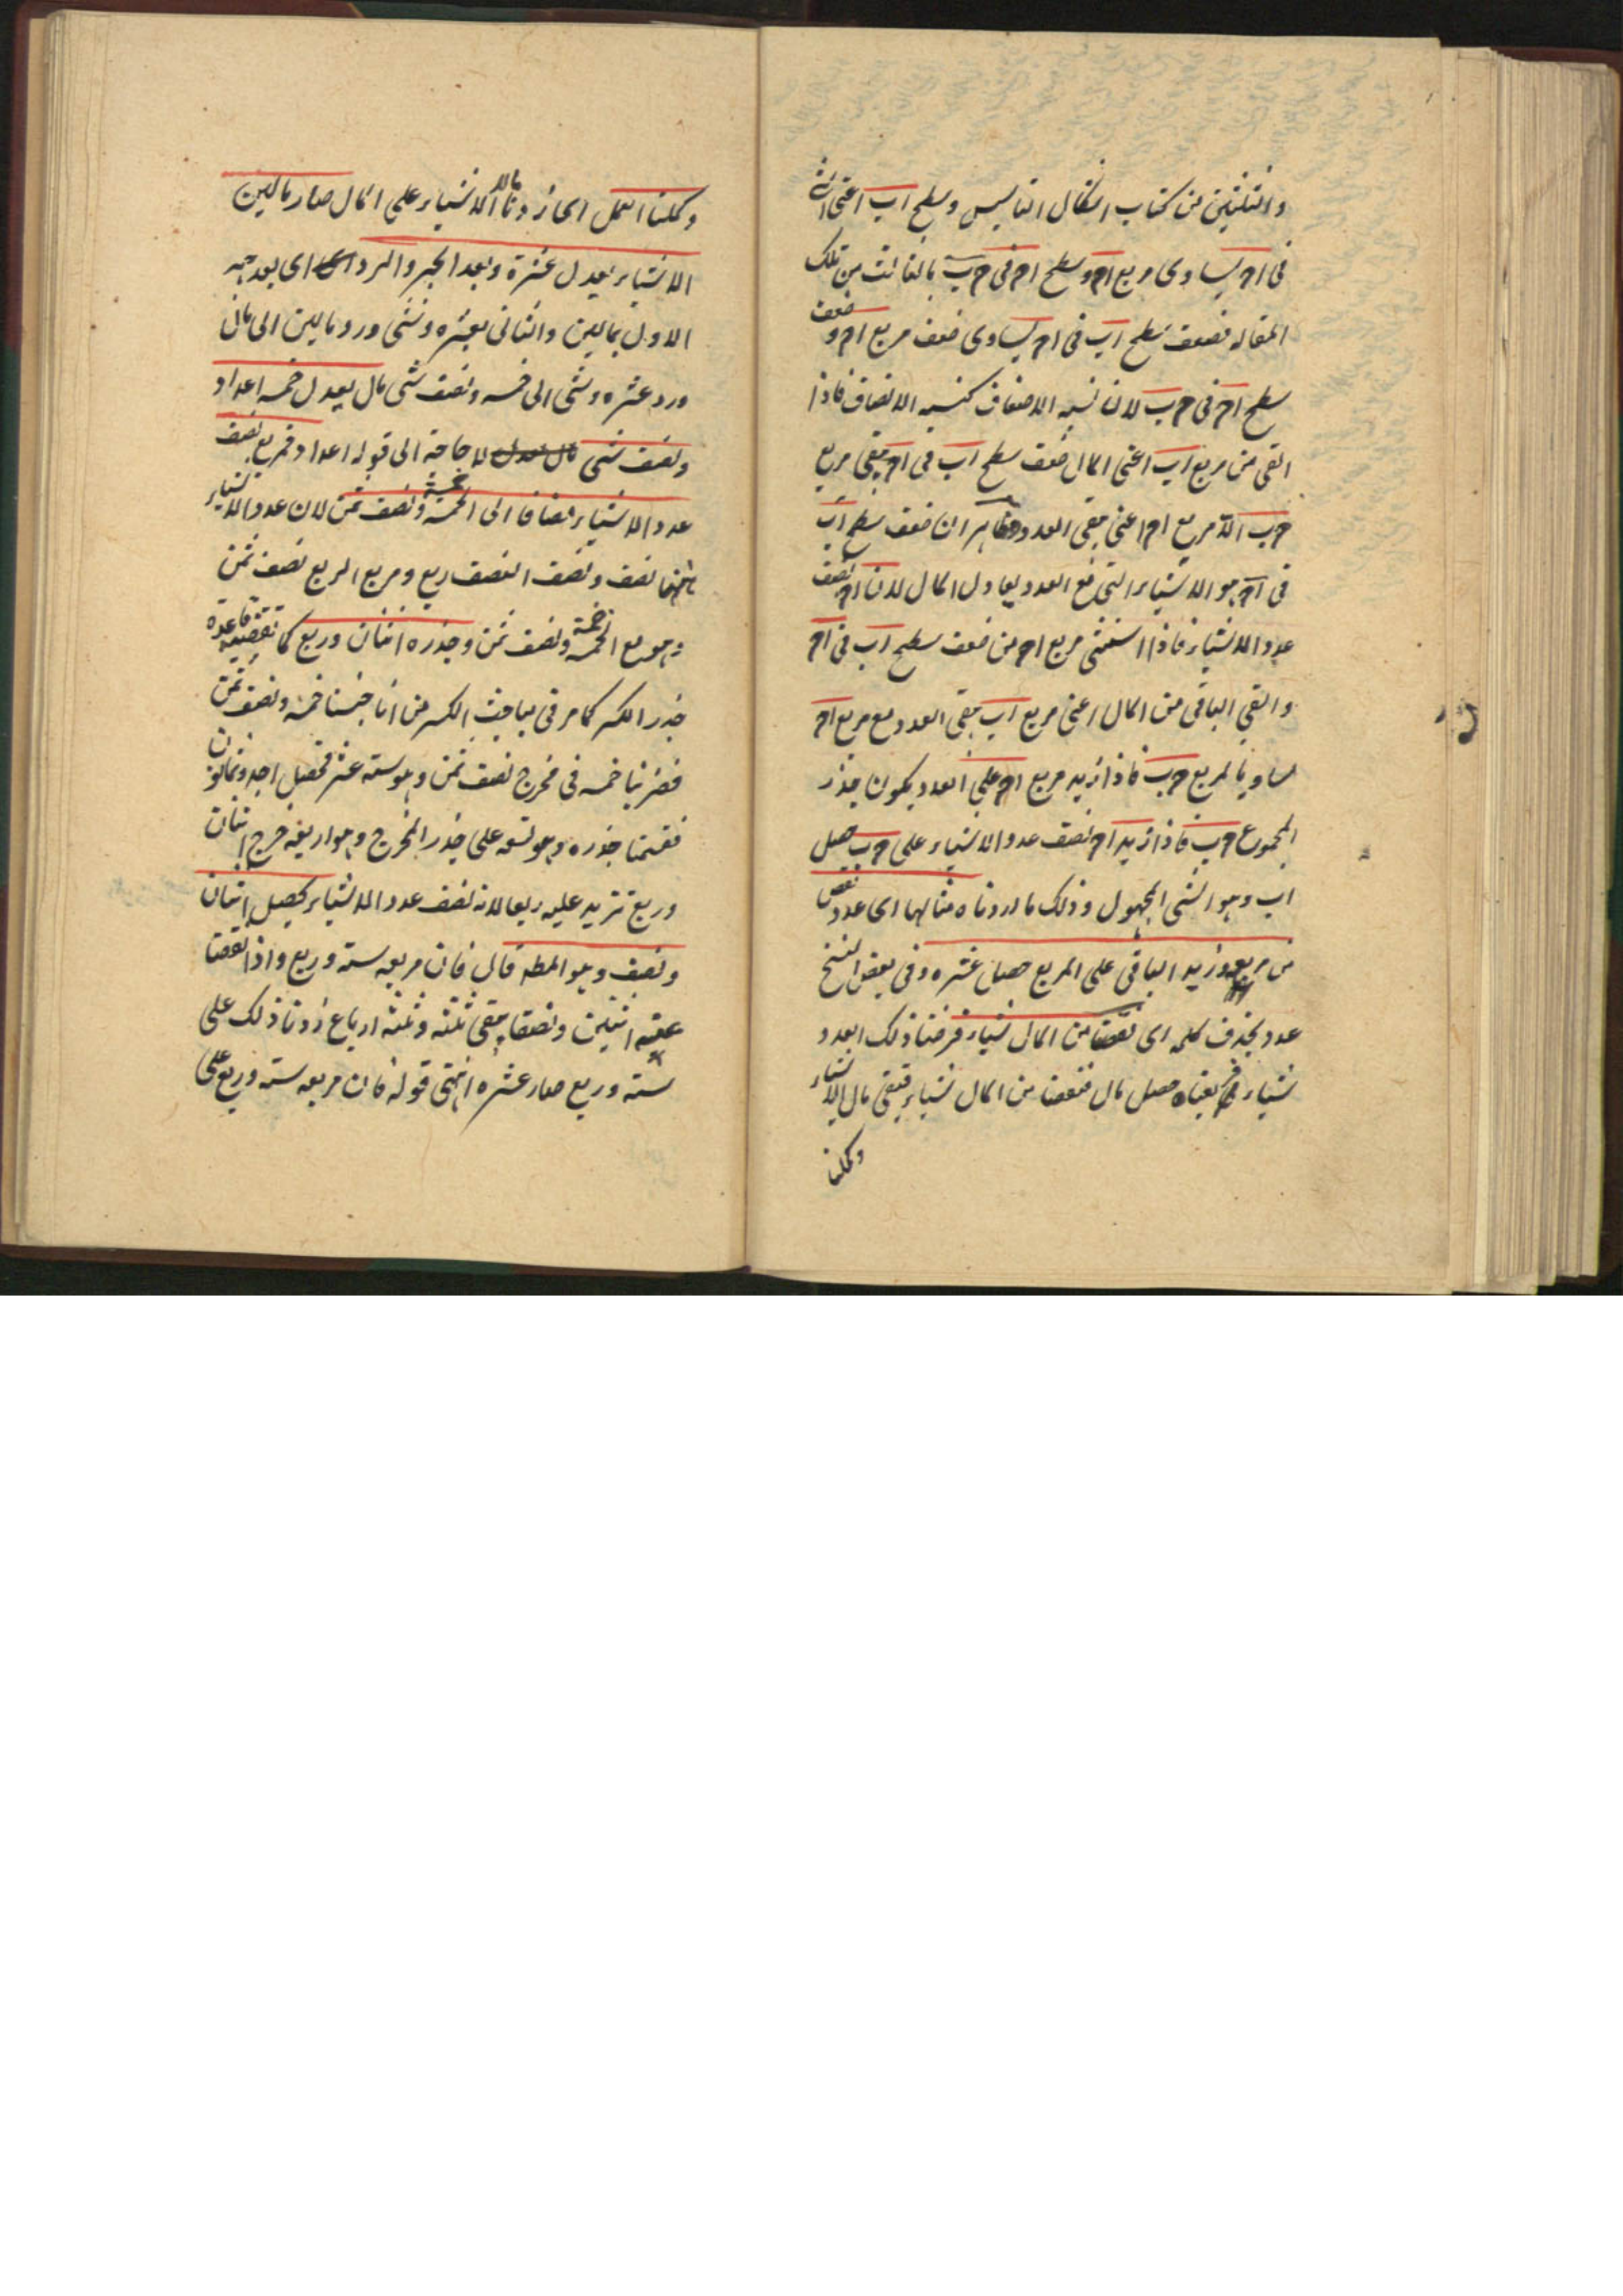 والثلثين من كتاب اشكال التاسيس وسطح اب اعنى
فى اح يساوى مربع اح وسطح اح فى ح ب بالثالث من تلك
المقاله فضعف سطح اب فى اح يساوى ضعف مربع اح و ضعف
سطح اح فى ح ب لان نسبه الاضعاف كنسبه الانصاف فاذا
القى من مربع اب اعنى المال ضعف سطح اب فى اح يبقى مربع
ح ب الا مربع اح اعنى يبقى العدد وظاهر ان ضعف سطح اب
فى اح هو الاشياء التى مع العدد يعادل المال لان اح نصف
عدد الاشياء فاذا استثنى مربع اح من ضعف سطح اب فى اح
والقى الباقى من المال اعنى مربع اب بقى العدد مع مربع اح
مساويا لمربع ح ب فاذا زيد مربع اح على العدد يكون جذر
المجموع ح ب فاذا زيد اح نصف عدد الاشياء على ح ب حصل
اب وهو الشى المجهول وذلك ما اردناه مثالها اى عدد نقص
من مربعه وزيد الباقى على المربع حصل عشره وفى بعض النسخ
عدد بحذف كلمه اى نقصنا من المال شياء فرضنا ذلك العدد
شياء فربعناه حصل مال فنقصنا من المال شياء فبقى مال الا شياء
وكملنا
وكملنا العمل اى زدنا مالا الا شياء على المال صار مالين
الا شياء يعدل عشرة وبعد الجبر والرد اى بعد جبر
الاول بمالين والثانى بعشره وشى ورد مالين الى مال
ورد عشره وشى الى خمسه ونصف شى مال يعدل خمسه اعداد
ونصف شى لا حاجة الى قوله اعداد فمربع نصف
عدد الاشياء مضافا الى الخمسة خمسة ونصف ثمن لان عدد الاشياء
ههنا نصف ونصف النصف ربع ومربع الربع نصف ثمن
وهو مع الخمسه خمسة ونصف ثمن وجذره اثنان وربع كما تقتضيه قاعدة
جذر الكسر كما مر فى مباحث الكسر من انا جنسنا خمسه ونصف ثمن
فضربنا خمسه فى مخرج نصف ثمن وهو سته عشر فحصل احد وثمانون
فقسمنا جذره وهو تسعه على جذر المخرج وهو اربعه خرج اثنان
وربع تزيد عليه ربعا لانه نصف عدد الاشياء يحصل اثنان
ونصف وهو المطه قال فان مربعه سته وربع واذا نقصنا
عنه اثنين ونصفا يبقى ثلثه وثلثه ارباع زدنا ذلك على
سته وربع صار عشره انتهى قوله فان مربعه سته وربع على